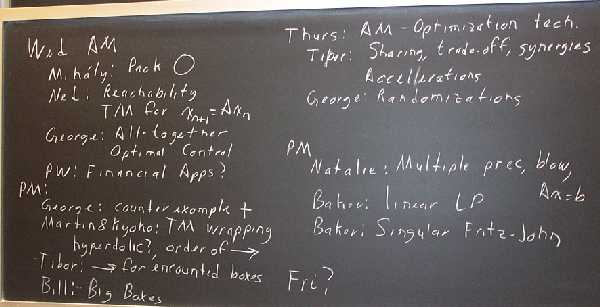 Wed AM
Mihály: Pack O
Ned: Reachability
TM for xn+1 = Axn
George: All-together
Optimal Control
PW: Financial Apps?
PM:
George: counterexample +
Martin & Kyoko: TM wrapping
hyperbolic?, order of →
Tibor: → for encounted boxes
Bill: Big Boxes
Thurs: AM - Optimization tech.
Tibor: Sharing, trade-off, synergies
Accellerations
George: Randomizations
PM
Natalie: Multiple prec, blow,
Ax=b
Baker: linear LP
Baker: Singular Fritz-John
Fri?